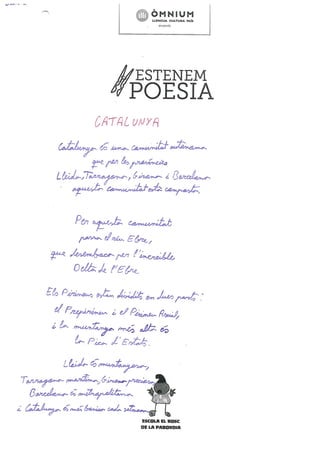 ÒMNIUM
LLENGUA CULTURA PAÍS
ESTENEM
POESIA
CATALUNYA
Catalunya és una comunitat autònoma
que per les províncies
Lleida, Tarragona, Girona i Barcelona
aquesta comunitat està composta.
Per aquesta comunitat
passa el riu Ebre,
que desemboca per l'increïble
Delta de l'Ebre.
Els Pirineus estan dividits en dues parts:
el Prepirineu i el Pirineu Axial,
i la muntanya més alta és
la Pica d'Estats.
Lleida és muntanyosa,
Tarragona marítima, Girona preciosa
Barcelona és metropolitana
i Catalunya és més bonica cada setmana.
ESCOLA EL BOSC
DE LA PABORDIA